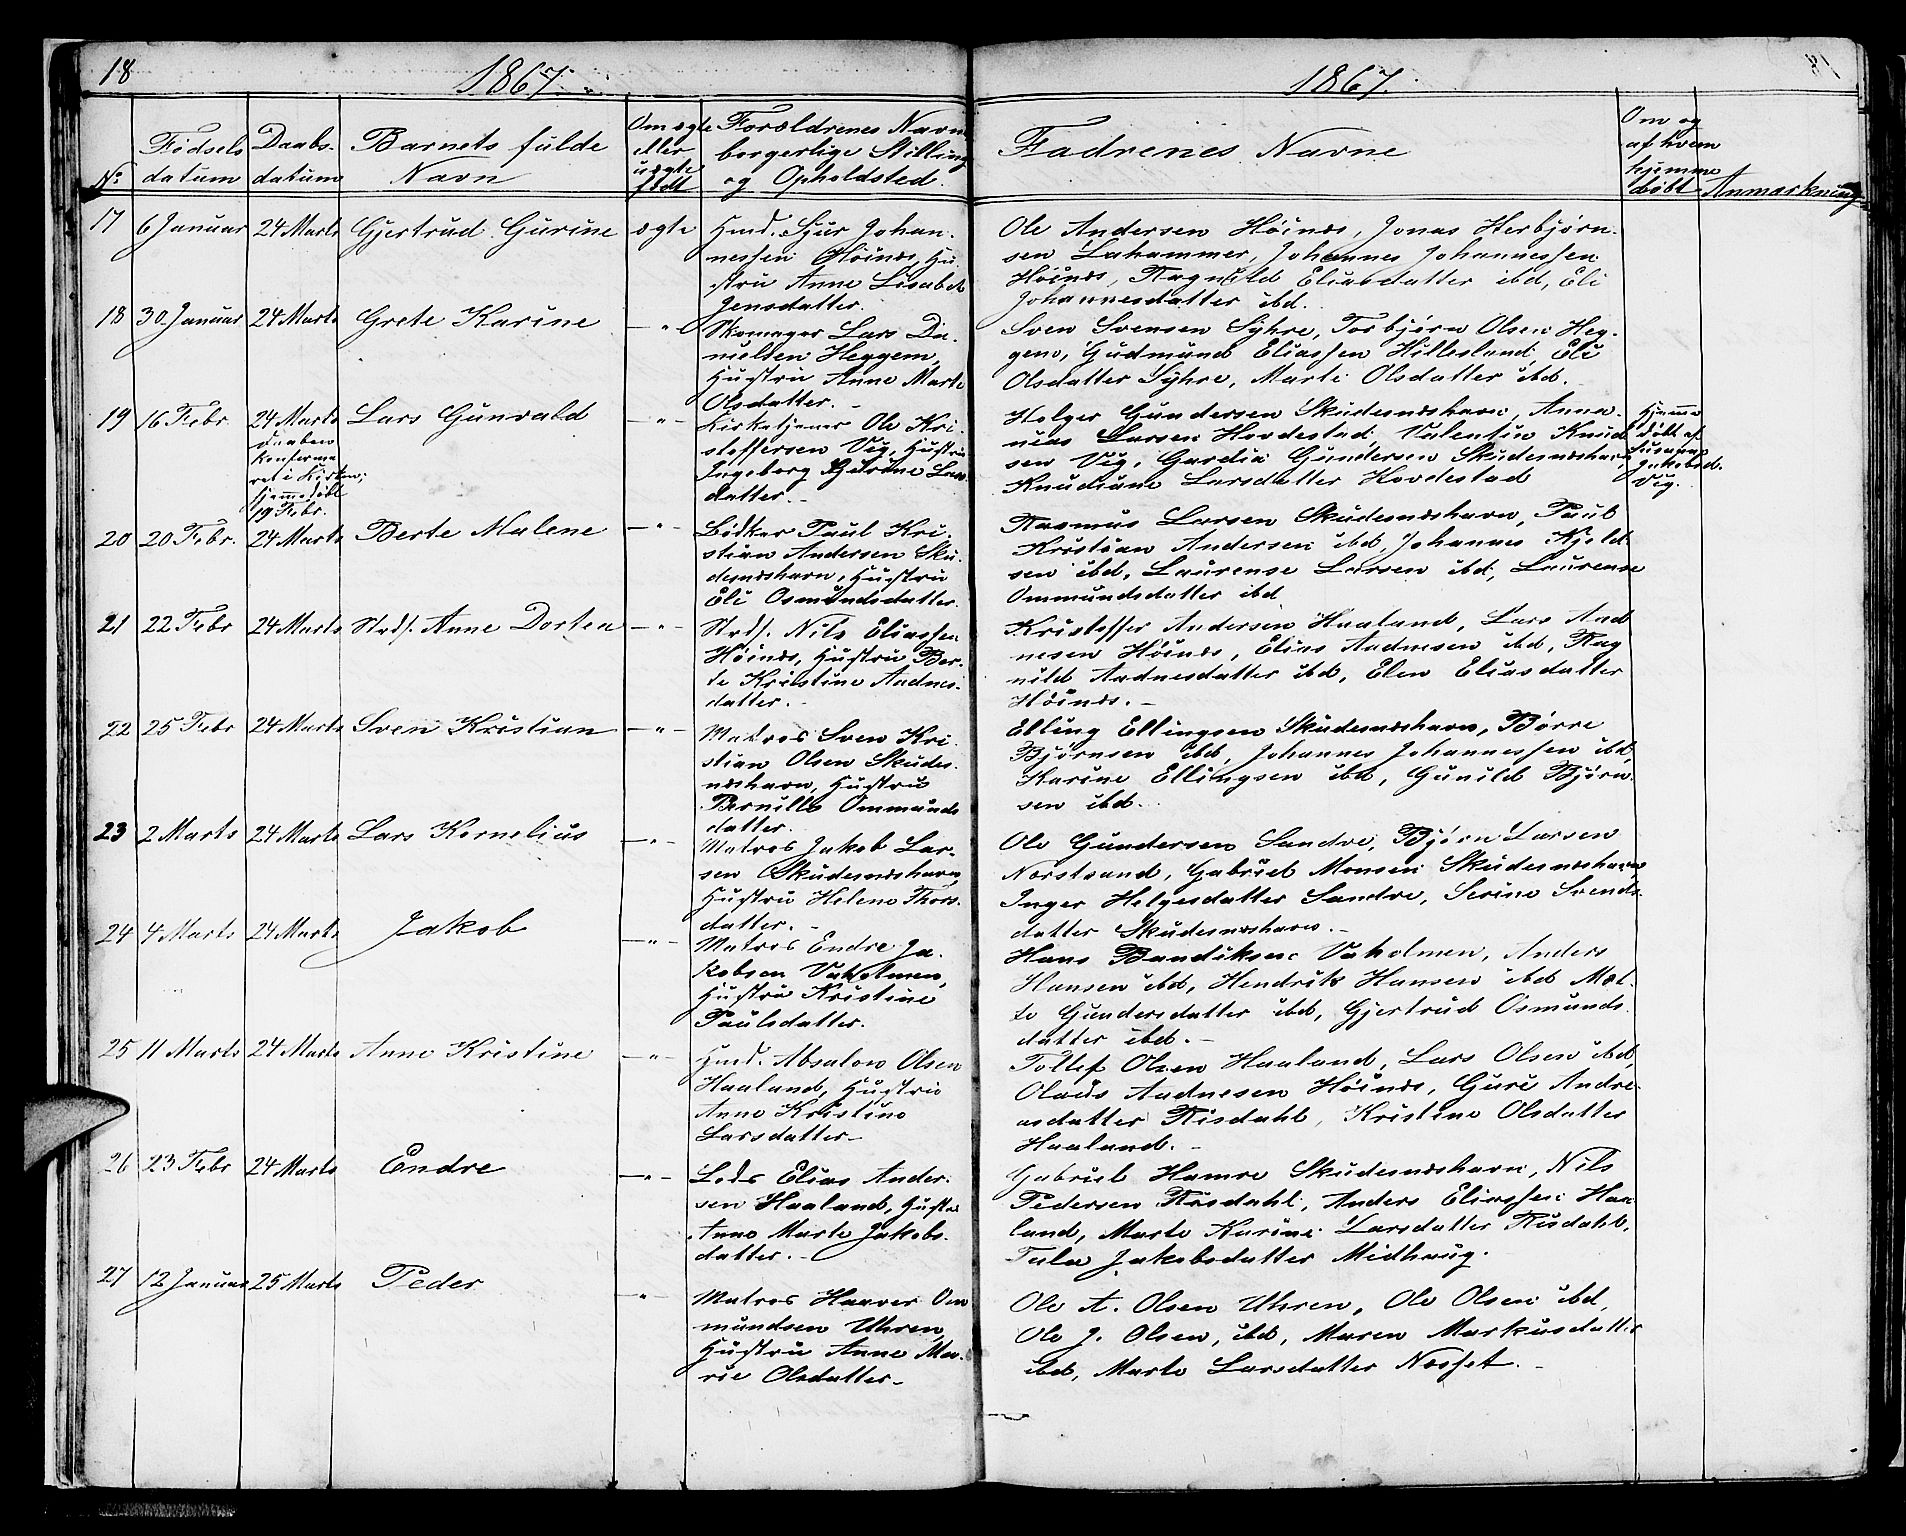 18
1867.
1867.
No
Fødsels
datum
Daabs-
datum
Barnets fulde
Navn
Om ægte
eller
uægte
født
Forældrenes Navn
borgerlige Stilling
og Opholdsted.
Fadrenes Navne
Om og
af hvem
hjemme
døbt
Anmærkning
17 6 Januar 24 Marts Gjertrud Gurine ægte
Gmd. Sjur Johan-
nessen Høinæs, Hu-
stru Anne Lisabet
Jensdatter.
Ole Andersen Høinæs, Jonas Herbjørn-
sen Lahammer, Johannes Johannessen
Høinæs, Ragnild Eliasdatter ibd, Eli
Johannesdatter ibd.
18 30 Januar 24 Marts Grete Karine — " —
Skomager Lars Da-
nielsen Heggem,
Hustru Anne Marte
Olsdatter. -
Sven Svensen Syhre, Torbjørn Olsen Heg-
gem, Gudmund Eliassen Hillesland, Eli
Olsdatter Syhre, Marte Olsdatter ibd.
19 16 Febr. 24 Marts Lars Gunvald — " —
Daaben
konferme
ret i Kirken;
hjemmedøbt
19 Febr.
Kirketjener Ole Kri-
stoffersen Vig, Hustru
Ingeborg Gurine Lars
datter. -
Holger Gundersen Skudesnæshavn, Anna-
nias Larsen Hovdestad, Valentin Knud
sen Vig, Gardia Gundersen Skudesnæshavn,
Knudiane Larsdatter Hovdestad
Hjemme
døbt af
Susanna
Jakobsd.
Vig.
20 20 Febr. 24 Marts Berte Malene — " —
Bødker Paul Kri-
stian Andersen Sku-
desnæshavn, Hustru
Eli Osmundsdatter.
Rasmus Larsen Skudesnæshavn, Paul
Kristian Andersen ibd, Johannes Kjeld-
sen ibd, Laurense Larsen ibd, Laurense
Ommundsdatter ibd
21 22 Febr 24 Marts Strds. Anne Dorten — " —
Strds. Nils Eliassen
Høinæs, Hustru Ber-
te Kristine Aadnes-
datter. -
Kristoffer Andersen Haaland, Lars Aad
nesen Høinæs, Elias Aadnesen ibd, Rag
nild Aadnesdatter ibd, Elen Eliasdatter
Høinæs. -
22 25 Febr 24 Marts Sven Kristian — " —
Matros Sven Kri-
stian Olsen Skudes-
næshavn, Hustru
Pernille Ommunds
datter.
Elling Ellingsen Skudesnæshavn, Børre
Bjørnsen ibd, Johannes Johannessen ibd,
Karine Ellingsen ibd, Gunild Bjørn-
sen ibd.
23 2 Marts 24 Marts Lars Kornelius — " —
Matros Jakob Lar-
sen Skudesnæshavn,
Hustru Helene Thors-
datter. -
Ole Gundersen Sandve, Bjørn Larsen
Norstrand, Gabriel Monsen Skudesnæshavn
Inger Helgesdatter Sandve, Serine Svends-
datter Skudesnæshavn. -
24 4 Marts 24 Marts Jakob — " —
Matros Endre Ja-
kobsen Vaholmen,
Hustru Kristine
Paulsdatter.
Hans Bendiksen Vaholmen, Anders
Hansen ibd, Hendrik Hansen ibd Met-
te Gundersdatter ibd, Gjertrud Osmunds
datter ibd. -
25 11 Marts 24 Marts Anne Kristine — " —
Gmd. Absalon Olsen
Haaland, Hustru
Anne Kristine
Larsdatter -
Tollef Olsen Haaland, Lars Olsen ibd,
Olaus Aadnesen Høinæs, Guri Andre-
asdatter Risdahl, Kristine Olsdatter
Haaland. -
26 23 Febr 24 Marts Endre — " —
Lods Elias Ander-
sen Haaland, Hustru
Anne Marte Jakobs-
datter. -
Gabriel Hamre Skudesnæshavn, Nils
Pedersen Risdahl, Anders Eliassen Haa-
land, Marte Karine Larsdatter Risdahl,
Tala Jakobsdatter Midhaug.
27 12 Januar 25 Marts Peder — " —
Matros Haaver Om
mundsen Uhren,
Hustru Anne Ma-
rie Olsdatter -
Ole A. Olsen Uhren, Ole Olsen ibd,
Ole J. Olsen, ibd, Maren Markusdatter
ibd, Marte Larsdatter Næsset. -